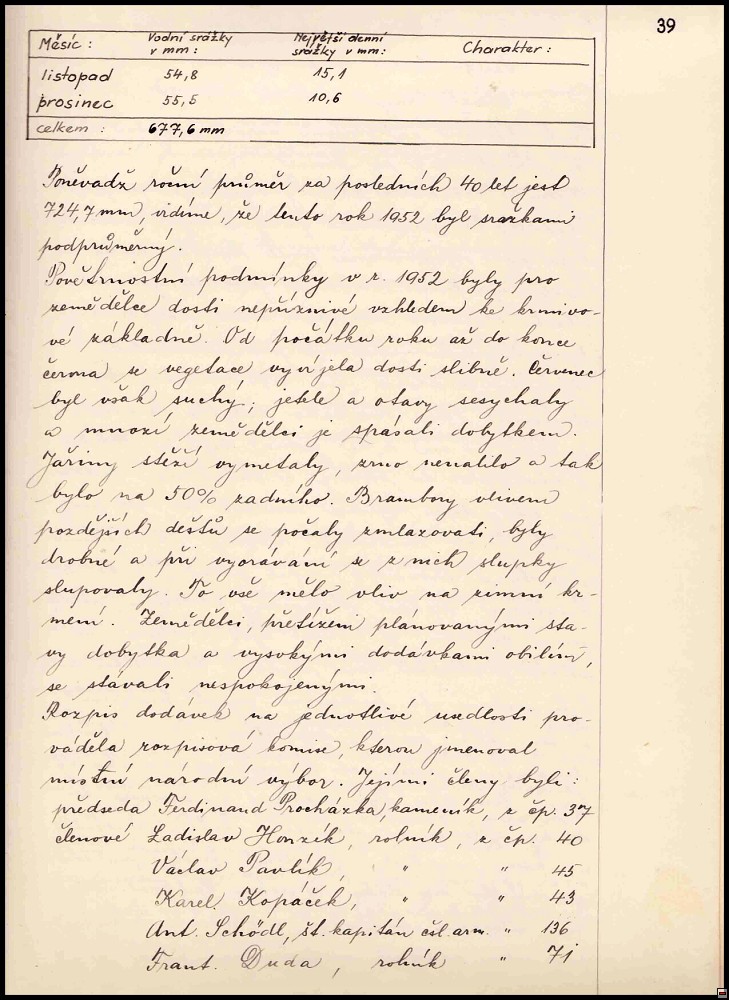 39
Měsíc : Vodní srážky v mm : Největší denní srážky v mm : Charakter :
listopad 54,8 15,1
prosinec 55,5 10,6
celkem : 677,6 mm
Poněvadž roční průměr za posledních 40 let jest
724,7 mm, vidíme, že tento rok 1952 byl srážkami
podprůměrný.
Povětrnostní podmínky v r. 1952 byly pro
zemědělce dosti nepříznivé vzhledem ke krmivo-
vé základně. Od počátku roku až do konce
června se vegetace vyvíjela dosti slibně. Červenec
byl však suchý; jetele a otavy sesychaly
a mnozí zemědělci je spásali dobytkem.
Jařiny stěží vymetaly, zrno nenalilo a tak
bylo na 50% zadního. Brambory vlivem
pozdějších dešťů se počaly zmlazovati, byly
drobné a při vyorávání se z nich slupky
slupovaly. To vše mělo vliv na zimní kr-
mení. Zemědělci, přetíženi plánovanými sta-
vy dobytka a vysokými dodávkami obilím,
se stávali nespokojenými.
Rozpis dodávek na jednotlivé usedlosti pro-
váděla rozpisová komise, kterou jmenoval
místní národní výbor. Jejími členy byli :
předseda Ferdinand Procházka, kameník, z čp. 37
členové Ladislav Honzík, rolník, z čp. 40
Václav Pavlík, " " 45
Karel Kopáček, " " 43
Ant. Schödl, št. kapitán čsl. arm. " 136
Frant. Duda, rolník " 71